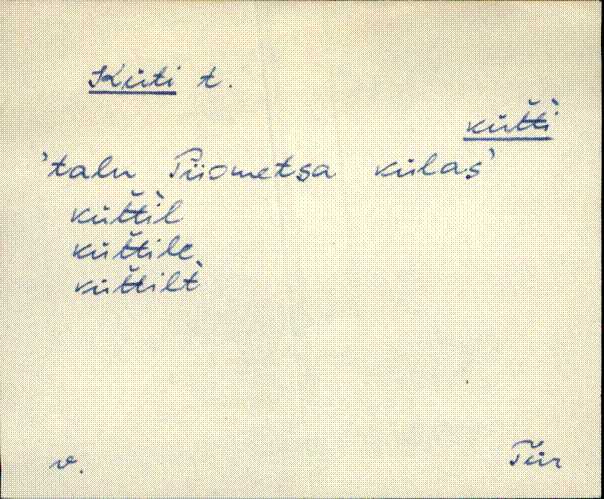 Küti t.
küt̆t̆ì
'talu Piiometsa külas'
küt̆t̆ìl
küt̆t̆ile
küt̆t̆ilt̀
v.
Tür